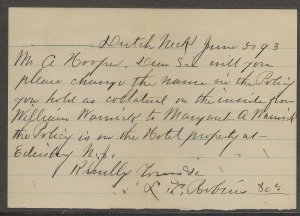 Dutch Neck June 5, 93
Mr A Hooper, Dear Sir will you
please change the name in the Policy
you hold as collateral on the inside from
William Warwick to Margaret A Warwick
the Policy is on the Hotel property at
Edinburg N.J.
Respectfully Yours &c
L. F. Robins